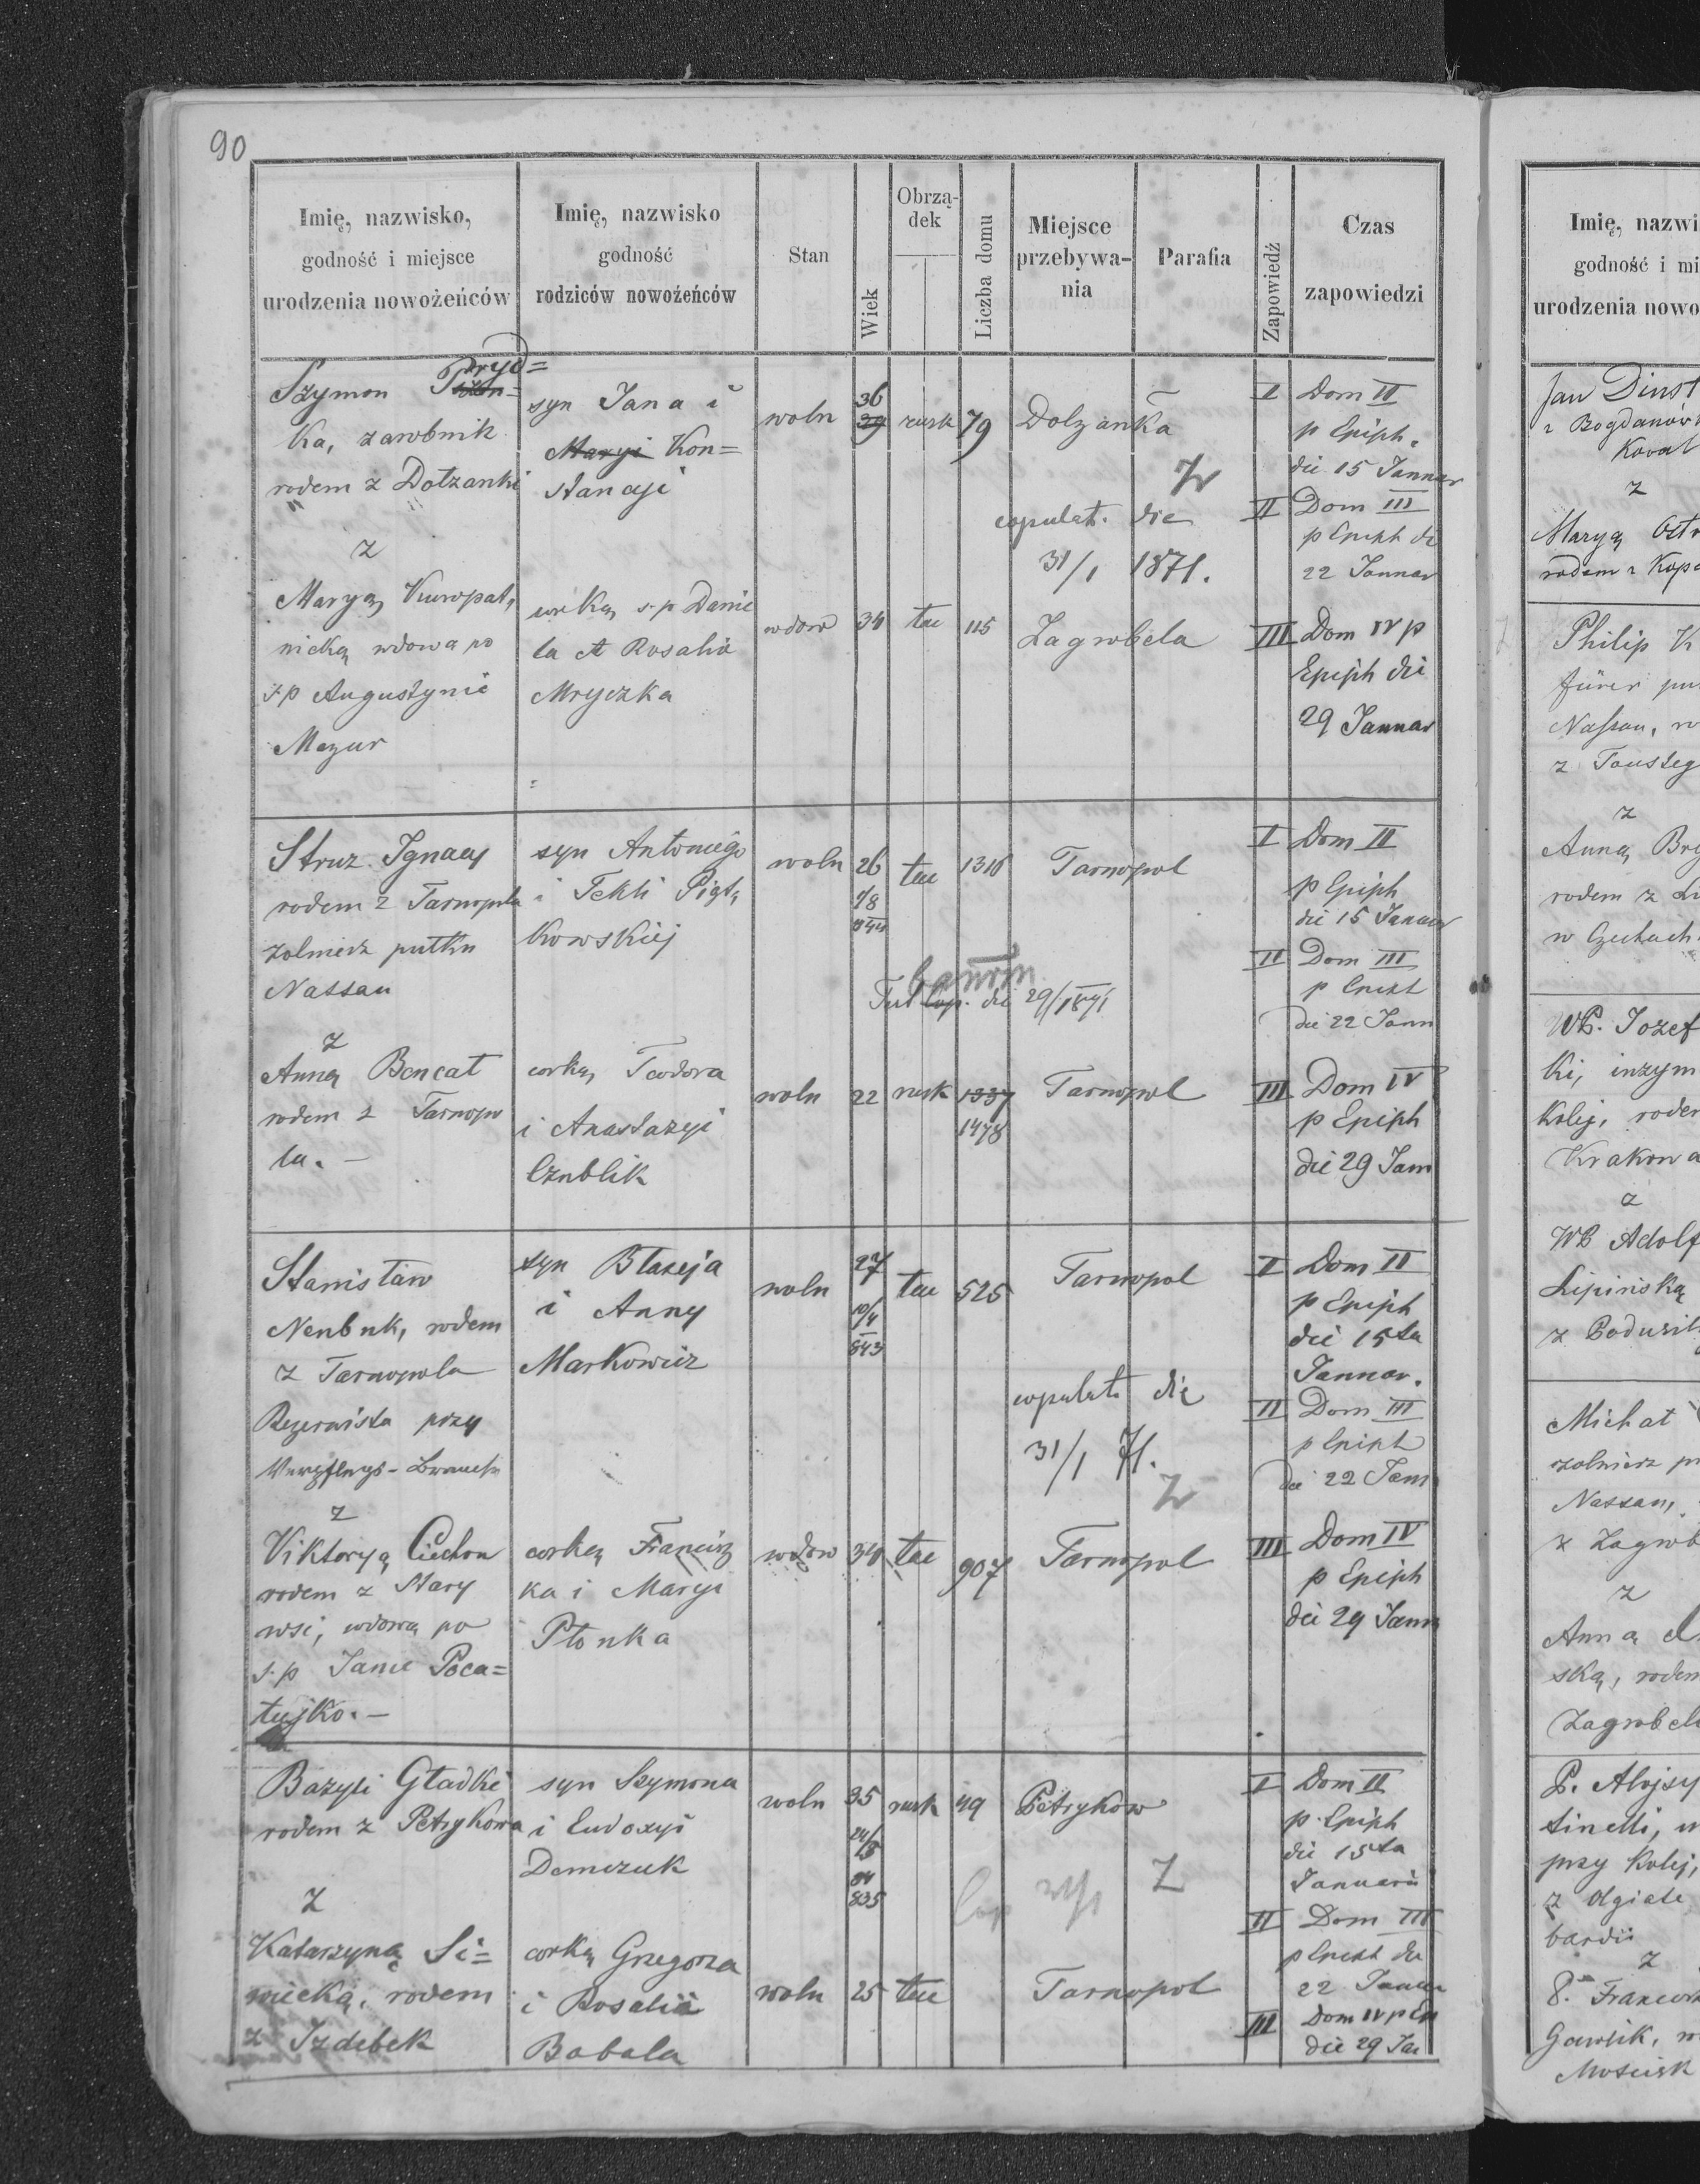 90
Imię, nazwisko,
godność i miejsce
urodzenia nowożeńców
Imię, nazwisko
godność
rodziców nowożeńców
Stan
Wiek
Obrzą-
dek
Liczba domu
Miejsce
przebywa-
nia
Parafia
Zapowiedź
Czas
zapowiedzi
Szymon Pryd=
ka, zarobnik
rodem z Dołzanki
z
Maryą Kuropat,
nicką wdowa po
s.p Augustynie
Mazur
syn Jana i
Maryi Kon=
stancyi
corką s.p Danie
la et Rosalia
Mryczka
woln
36
39
rusk
79
Dolzanka
Z
copulat. die
31/1 1871.
wdow
34
lac
115
Zagrobela
I
Dom II
p Epiph.
die 15 Januar
II
Dom III
p Epiph die
22 Januar
III
Dom IV p
Epiph die
29 Januar
Struz Ignacy
rodem z Tarnopola
zolnierz pułku
Nassau
z
Anną Bencat
rodem z Tarnopo
la. -
syn Antoniego
i Tekli Piąt,
kowskiej
corką Teodora
i Anastazyi
Czublik
woln
26
1/8
844
lac
1316
Tarnopol
Cop. die 29/1 871
woln
22
rusk
1337
1478
Tarnopol
I
Dom II
p Epiph
die 15 Januar
II
Dom III
p Epiph
die 22 Jann
III
Dom IV
p Epiph
die 29 Jann
Stanisław
Nenbuk, rodem
z Tarnopola
Rezerwista przy
Verpflegs-Branche
z
Viktoryą Ciechon
rodem z Stary
wsi, wdową po
s.p Janie Poca=
łujko. -
syn Błazeja
i Anny
Markowicz
corką Francisz
ka i Maryi
Płonka
woln
27
10/4
843
lac
525
Tarnopol
copulat. die
31/1 71.
Z
wdow
34
lac
907
Tarnopol
I
Dom II
p Epiph
die 15ta
Januar.
II
Dom III
p Epiph
die 22 Jann
III
Dom IV
p Epiph
die 29 Jann
Bazyli Gładki
rodem z Petrykowa
z
Katarzyną Si=
wiecką, rodem
z Izdebek
syn Szymona
i Eudoxyi
Demczuk
corką Grzegorza
i Rosalii
Babala
woln
35
835
rusk
49
Petryków
Cop
Z
woln
25
lac
Tarnopol
I
Dom II
p. Epiph
die 15ta
Januarii
II
Dom III
p Epiph die
22 Januar
III
Dom IV p Ep
die 29 Jan
Imię, nazwi
godność i mi
urodzenia nowo
Jan Dinst
z Bogdanówk
Koval
z
Maryą Ostr
rodem z Kopa
Philip K
fürer pu
Nassau, ro
z
Anną Bry
rodem z Li
w Czechach
WP. Jozef
ki, inzym
kolej, rodem
Krakowa
z
WP Adolf
Lipinską
z
Michał
zolnierz pu
Nassau,
z Zagrob
z
Anną
ską, rodem
Zagrobeli
P. Alojzy
tinelli, u
przy kolej,
z Olgiate
bardii
z
P. Francisz
Gawlik, ro
Moscisk